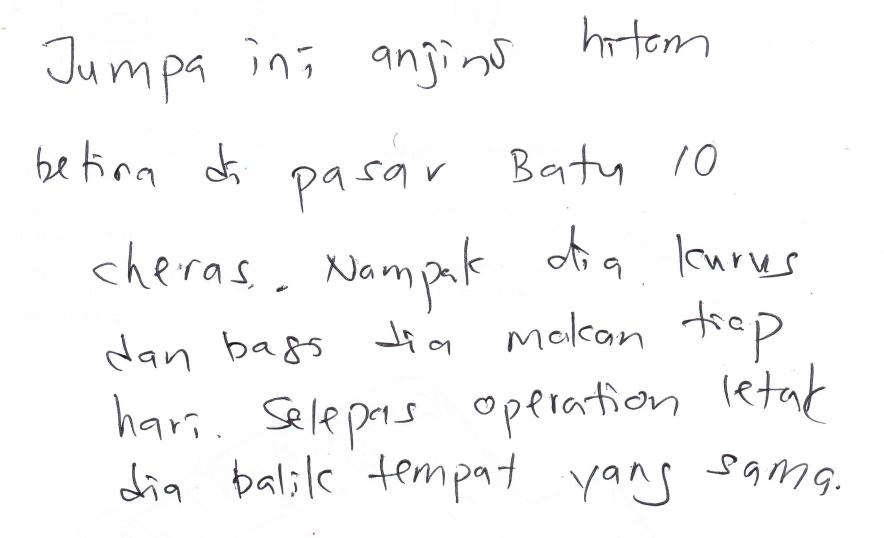 Jumpa ini anjing hitam
betina di pasar Batu 10
cheras. Nampak dia kurus
dan bagi dia makan tiap
hari. Selepas operation letak
dia balik tempat yang sama.